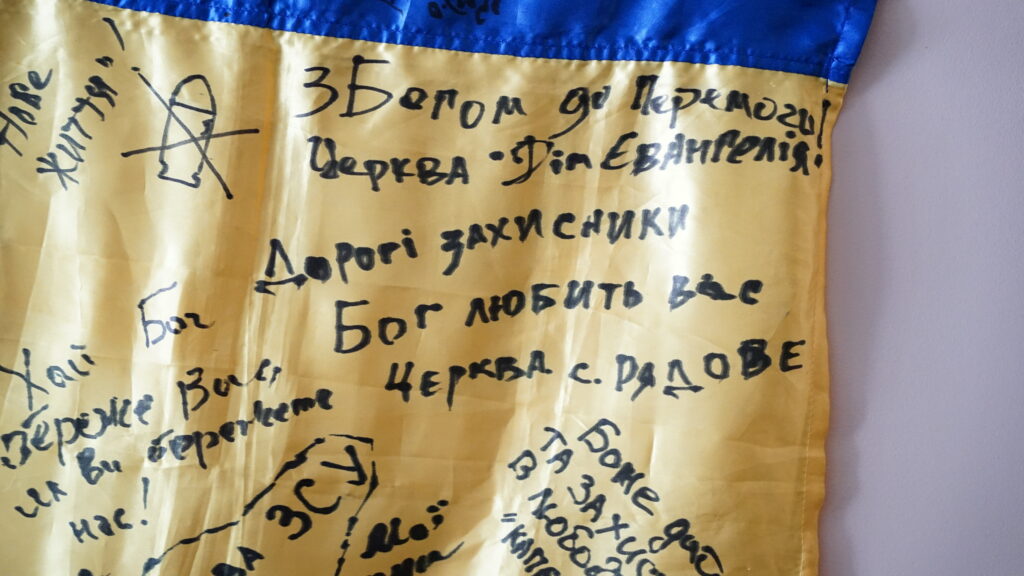 Нове
життя"!
З Богом до Перемоги!
Церква "Дім Євангелія".
Дорогі захисники
Бог любить вас
Церква с. Рядове
Хай Бог
береже Вас,
ви бережете
нас!
ЗСУ
Мої
Боже дай
та захис
в любо